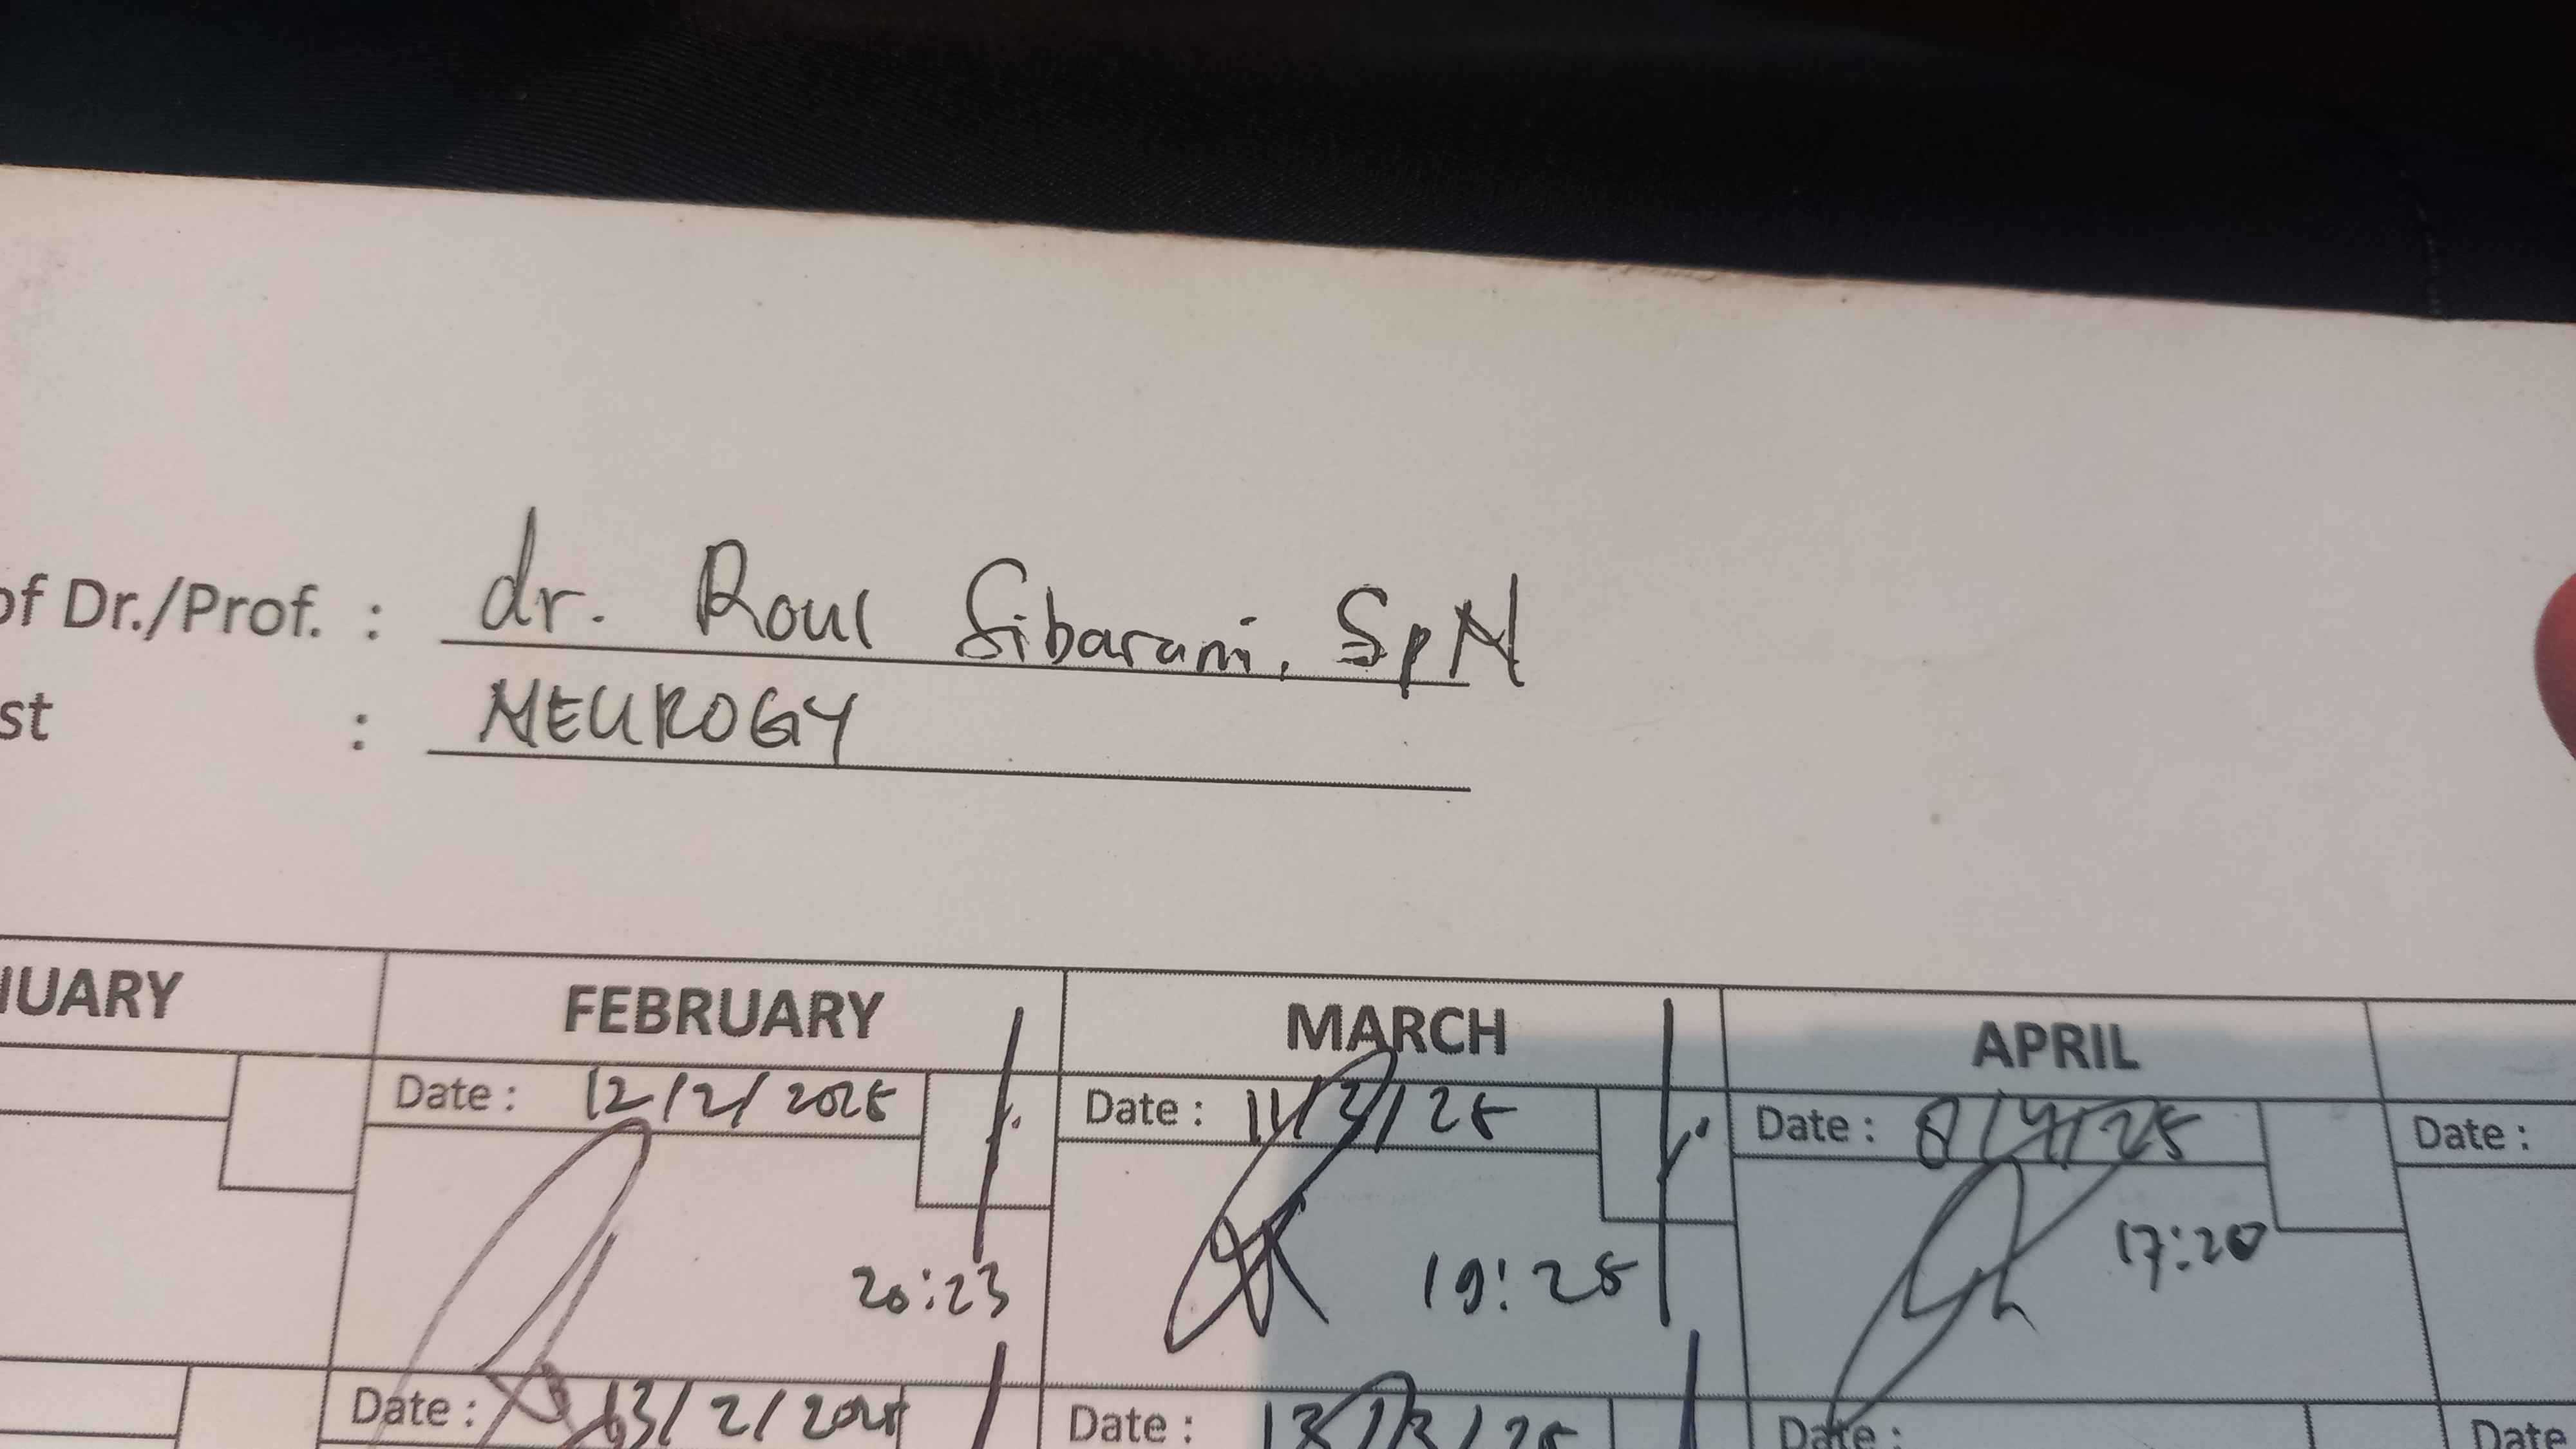 of Dr./Prof. : dr. Roul Sibarani, SpN
st : NEUROGY
NUARY FEBRUARY MARCH APRIL
Date : 12/2/2025 Date : 11/3/25 Date : 8/4/25 Date :
20:23 19:25 17:20
Date : 13/2/2025 Date : 13/3/25 Date : Date